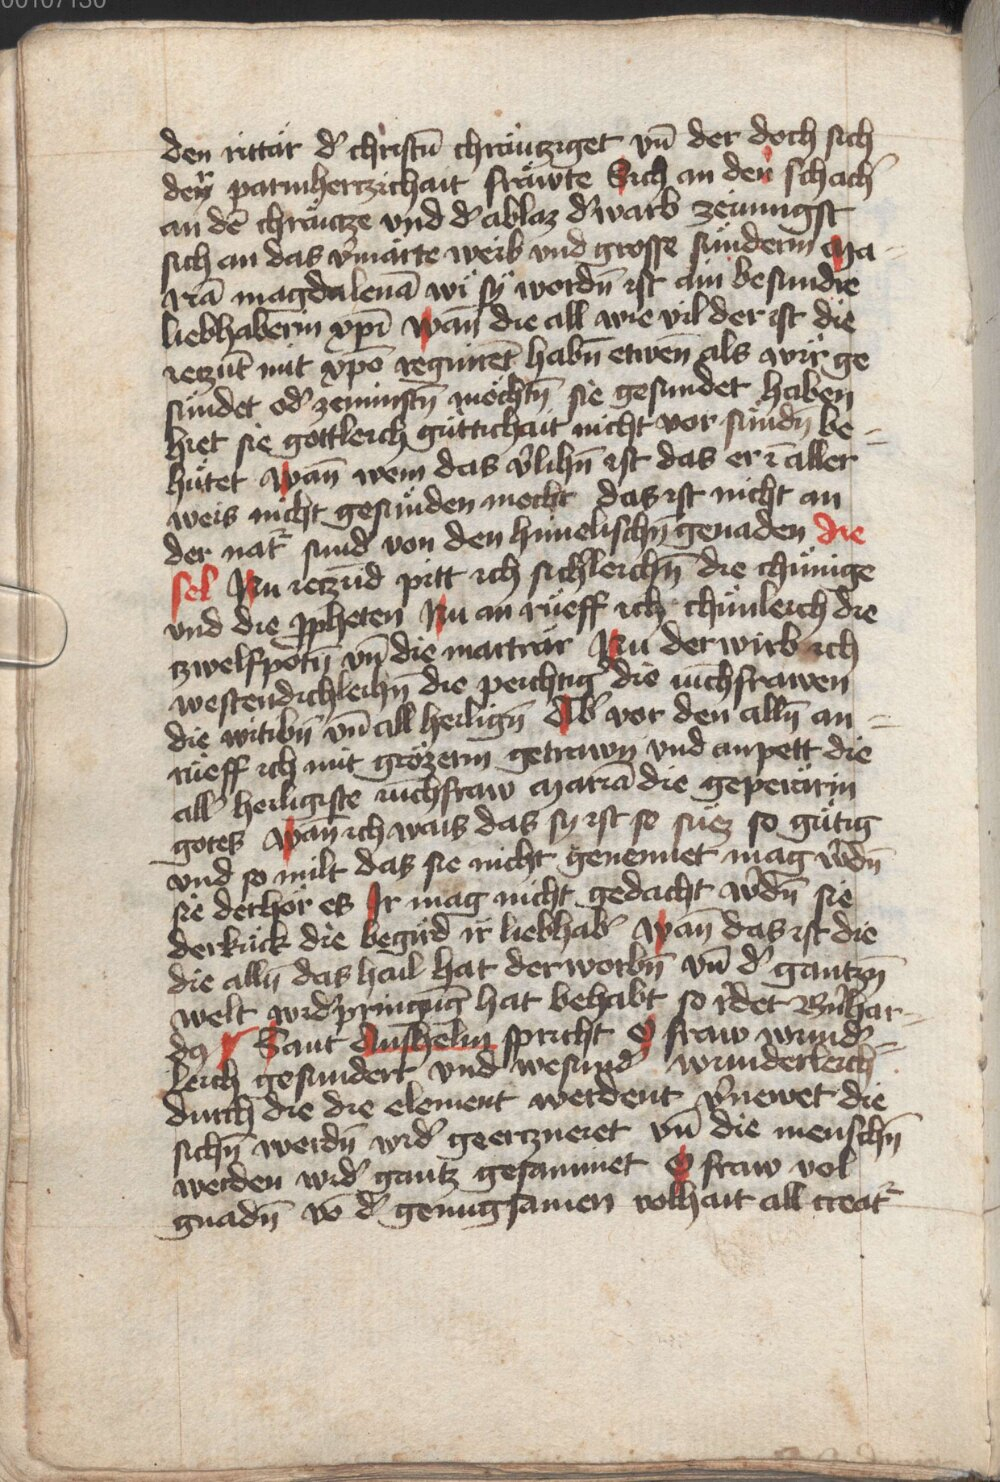 00107130
den rittär d' christū chräutziget vn̄ der doch sich
den parmhertzichait fräwte Sich an den schach
an dē chräutze vnd d' ablaz d'warb zeiungst
sich an das v'märte weib vnd grosse sünderin Ma-
riā magdalenā wi sy wordn̄ ist ain besundre
liebhaberin xp̄i Wan̄ die all wie vil der ist die
ietzūt mit xp̄o regnirēt habn̄ etwen̄ als wir ge
sündet od' zeminstn̄ möchtn̄ sie gesundet haben
hiet sie gottleich güttichait nicht vor sündn̄ be-
hütet Wan̄ wem das v'lihn̄ ist das er ī aller
weis nicht gesünden mocht das ist nicht an
der nat' sund von den himelischn̄ genaden die
sel Nu ietzūd pitt ich sich'leichn̄ die chünige
vnd die ꝓpheten Nu an rüeff ich chünleich die
tzwelfpotn̄ vn̄ die marträr Nu der wirb ich
westendichleihn̄ die peichtig' die iūchfrawen
die witibn̄ vn̄ all heilign̄ Ab' vor den alln̄ an-
rüeff ich mit grözerm getrawn vnd anpett die
all' heiligiste iūchfraw Mariā die geperärin
gotes Wan̄ ich wais das sy ist so süez so gütig
vnd so milt das sie nicht genennet mag w'dn̄
sie derhör es Ir mag nicht gedacht w'dn̄ sie
derkück die begird ir liebhab' Wan̄ das ist die
die alln̄ das hail hat derworbn̄ vn̄ d' gantzn̄
welt wid'pringūg hat behabt so r'det B'nhar-
d9 Sant Anshelm spricht O fraw wund'-
leich gesundert vnd wesund' wunderleich
durch die die element werdent v'newet die
sichn̄ werdn̄ wid' geertzneiet vn̄ die menschn̄
werden wid' gantz gesammet O fraw vol
gnadn̄ vō d' genugsamen volhait all creat'